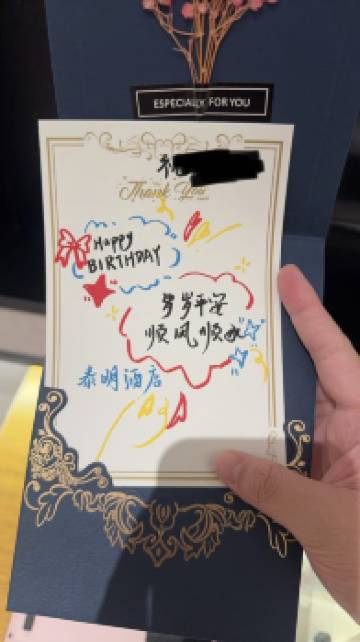 ESPECIALLY FOR YOU
祝
Thank You
Happy
BIRTHDAY
岁岁平安
顺风顺水
泰明酒店